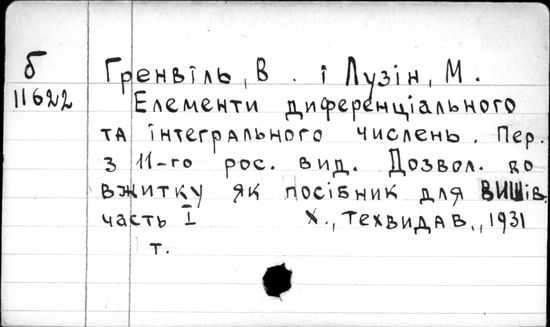 б
11622
Гренвіль, В. і Лузін, М.
Елементи диференціального
та інтегрального числень. Пер.
з 11-го рос. вид. Дозвол. до
вжитку як посібник для ВИШів.
часть I Х., Техвидав., 1931
т.